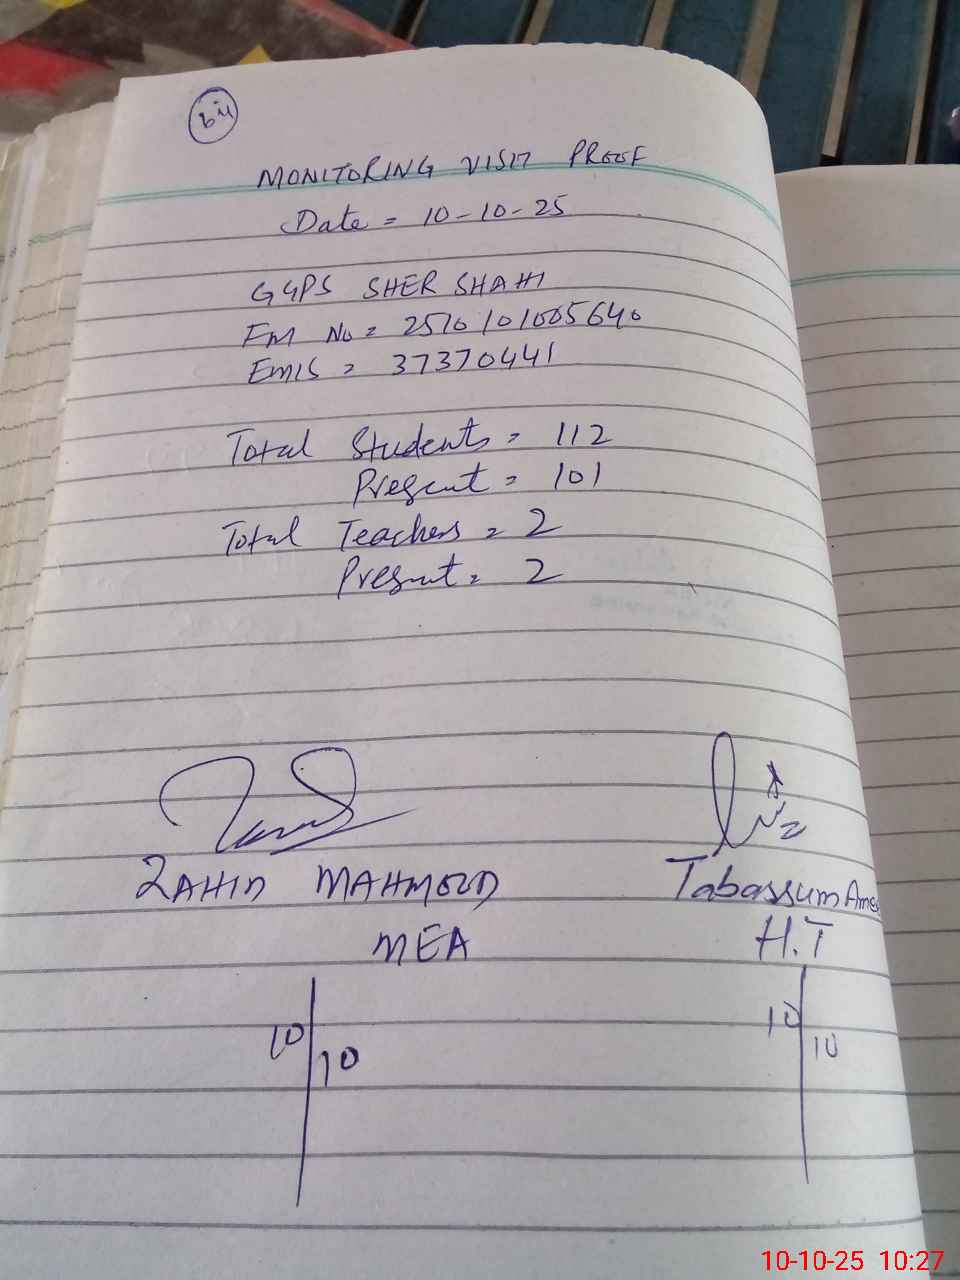 64
MONITORING VISIT PROOF
Date = 10-10-25
GGPS SHER SHAHI
FM No = 2510101005640
EMIS = 37370441
Total Students = 112
Present = 101
Total Teachers = 2
Present = 2
ZAHID MAHMOOD
Tabassum
MEA
H.T
10
10
10
10
10-10-25 10:27